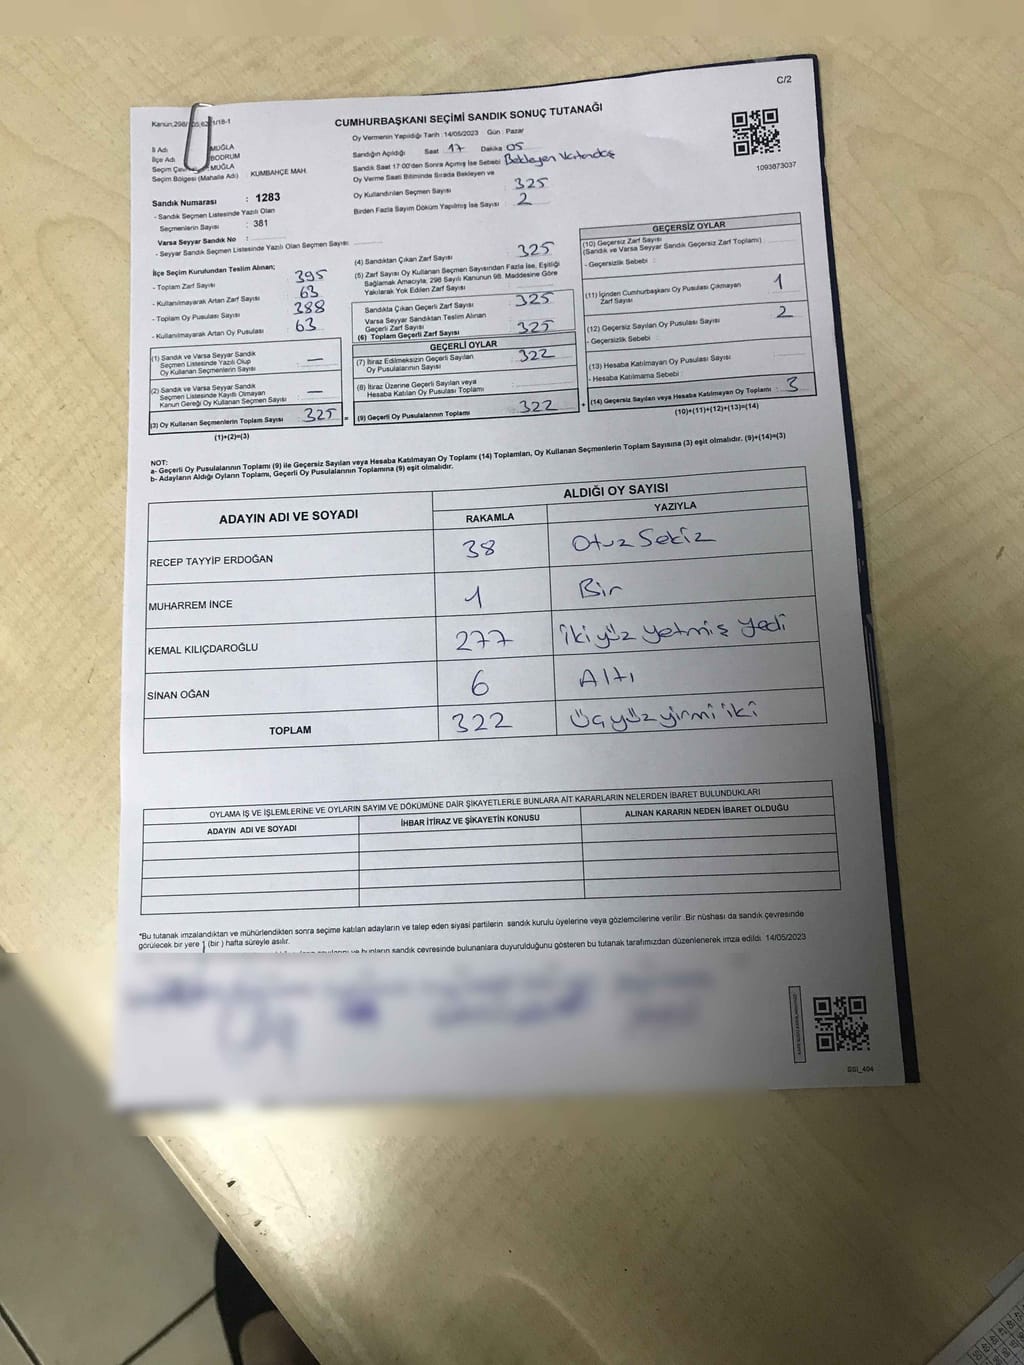 C/2
CUMHURBAŞKANI SEÇİMİ SANDIK SONUÇ TUTANAĞI
Oy Vermenin Yapıldığı Tarih : 14/05/2023 Gün : Pazar
Sandığın Açıldığı Saat 17 Dakika 05
Sandık Saat 17:00'den Sonra Açmış İse Sebebi Bekleyen Vatandaş
Oy Verme Saati Bitiminde Sırada Bekleyen ve
Oy Kullandırılan Seçmen Sayısı 325
Birden Fazla Sayım Döküm Yapılmış İse Sayısı : 2
1093873037
İl Adı MUĞLA
İlçe Adı BODRUM
MUĞLA
Seçim Bölgesi (Mahalle Adı) : KUMBAHÇE MAH.
Sandık Numarası : 1283
- Sandık Seçmen Listesinde Yazılı Olan
Seçmenlerin Sayısı : 381
Varsa Seyyar Sandık No :
- Seyyar Sandık Seçmen Listesinde Yazılı Olan Seçmen Sayısı:
İlçe Seçim Kurulundan Teslim Alınan;
- Toplam Zarf Sayısı : 395
- Kullanılmayarak Artan Zarf Sayısı : 63
- Toplam Oy Pusulası Sayısı : 388
- Kullanılmayarak Artan Oy Pusulası : 63
(1) Sandık ve Varsa Seyyar Sandık
Seçmen Listesinde Yazılı Olup
Oy Kullanan Seçmenlerin Sayısı : —
(2) Sandık ve Varsa Seyyar Sandık
Seçmen Listesinde Kayıtlı Olmayan
Kanun Gereği Oy Kullanan Seçmen Sayısı : —
(3) Oy Kullanan Seçmenlerin Toplam Sayısı : 325 =
(1)+(2)=(3)
(4) Sandıktan Çıkan Zarf Sayısı : 325
(5) Zarf Sayısı Oy Kullanan Seçmen Sayısından Fazla İse, Eşitliği
Sağlamak Amacıyla; 298 Sayılı Kanunun 98. Maddesine Göre
Yakılarak Yok Edilen Zarf Sayısı
Sandıkta Çıkan Geçerli Zarf Sayısı : 325
Varsa Seyyar Sandıktan Teslim Alınan
Geçerli Zarf Sayısı
(6) Toplam Geçerli Zarf Sayısı : 325
GEÇERLİ OYLAR
(7) İtiraz Edilmeksizin Geçerli Sayılan
Oy Pusulalarının Sayısı : 322
(8) İtiraz Üzerine Geçerli Sayılan veya
Hesaba Katılan Oy Pusulası Toplamı :
(9) Geçerli Oy Pusulalarının Toplamı : 322 +
GEÇERSİZ OYLAR
(10) Geçersiz Zarf Sayısı
(Sandık ve Varsa Seyyar Sandık Geçersiz Zarf Toplamı)
- Geçersizlik Sebebi :
(11) İçinden Cumhurbaşkanı Oy Pusulası Çıkmayan
Zarf Sayısı : 1
(12) Geçersiz Sayılan Oy Pusulası Sayısı : 2
- Geçersizlik Sebebi :
(13) Hesaba Katılmayan Oy Pusulası Sayısı :
- Hesaba Katılmama Sebebi :
(14) Geçersiz Sayılan veya Hesaba Katılmayan Oy Toplamı : 3
(10)+(11)+(12)+(13)=(14)
NOT:
a- Geçerli Oy Pusulalarının Toplamı (9) ile Geçersiz Sayılan veya Hesaba Katılmayan Oy Toplamı (14) Toplamları, Oy Kullanan Seçmenlerin Toplam Sayısına (3) eşit olmalıdır. (9)+(14)=(3)
b- Adayların Aldığı Oyların Toplamı, Geçerli Oy Pusulalarının Toplamına (9) eşit olmalıdır.
ADAYIN ADI VE SOYADI ALDIĞI OY SAYISI
RAKAMLA YAZIYLA
RECEP TAYYİP ERDOĞAN 38 Otuz Sekiz
MUHARREM İNCE 1 Bir
KEMAL KILIÇDAROĞLU 277 İki yüz yetmiş yedi
SİNAN OĞAN 6 Altı
TOPLAM 322 Üç yüz yirmi iki
OYLAMA İŞ VE İŞLEMLERİNE VE OYLARIN SAYIM VE DÖKÜMÜNE DAİR ŞİKAYETLERLE BUNLARA AİT KARARLARIN NELERDEN İBARET BULUNDUKLARI
ADAYIN ADI VE SOYADI İHBAR İTİRAZ VE ŞİKAYETİN KONUSU ALINAN KARARIN NEDEN İBARET OLDUĞU
*Bu tutanak imzalandıktan ve mühürlendikten sonra seçime katılan adayların ve talep eden siyasi partilerin sandık kurulu üyelerine veya gözlemcilerine verilir. Bir nüshası da sandık çevresinde
görülecek bir yere 1 (bir) hafta süreyle asılır.
sandık çevresinde bulunanlara duyurulduğunu gösteren bu tutanak tarafımızdan düzenlenerek imza edildi. 14/05/2023
GSI_404